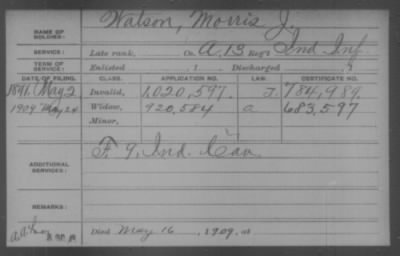 Watson, Morris J.
NAME OF SOLDIER:
SERVICE: Late rank, Co. A, 13 Reg't Ind Inf.
TERM OF SERVICE: Enlisted , 1 Discharged , 1
DATE OF FILING. CLASS. APPLICATION NO. LAW. CERTIFICATE NO.
1891, May 2 Invalid, 1,020,597. J. 784,989.
1909 May 24 Widow, 920,584 a 683,597
Minor,
F 9, Ind. Cav.
ADDITIONAL SERVICES:
REMARKS:
Died May 16, 1909, at